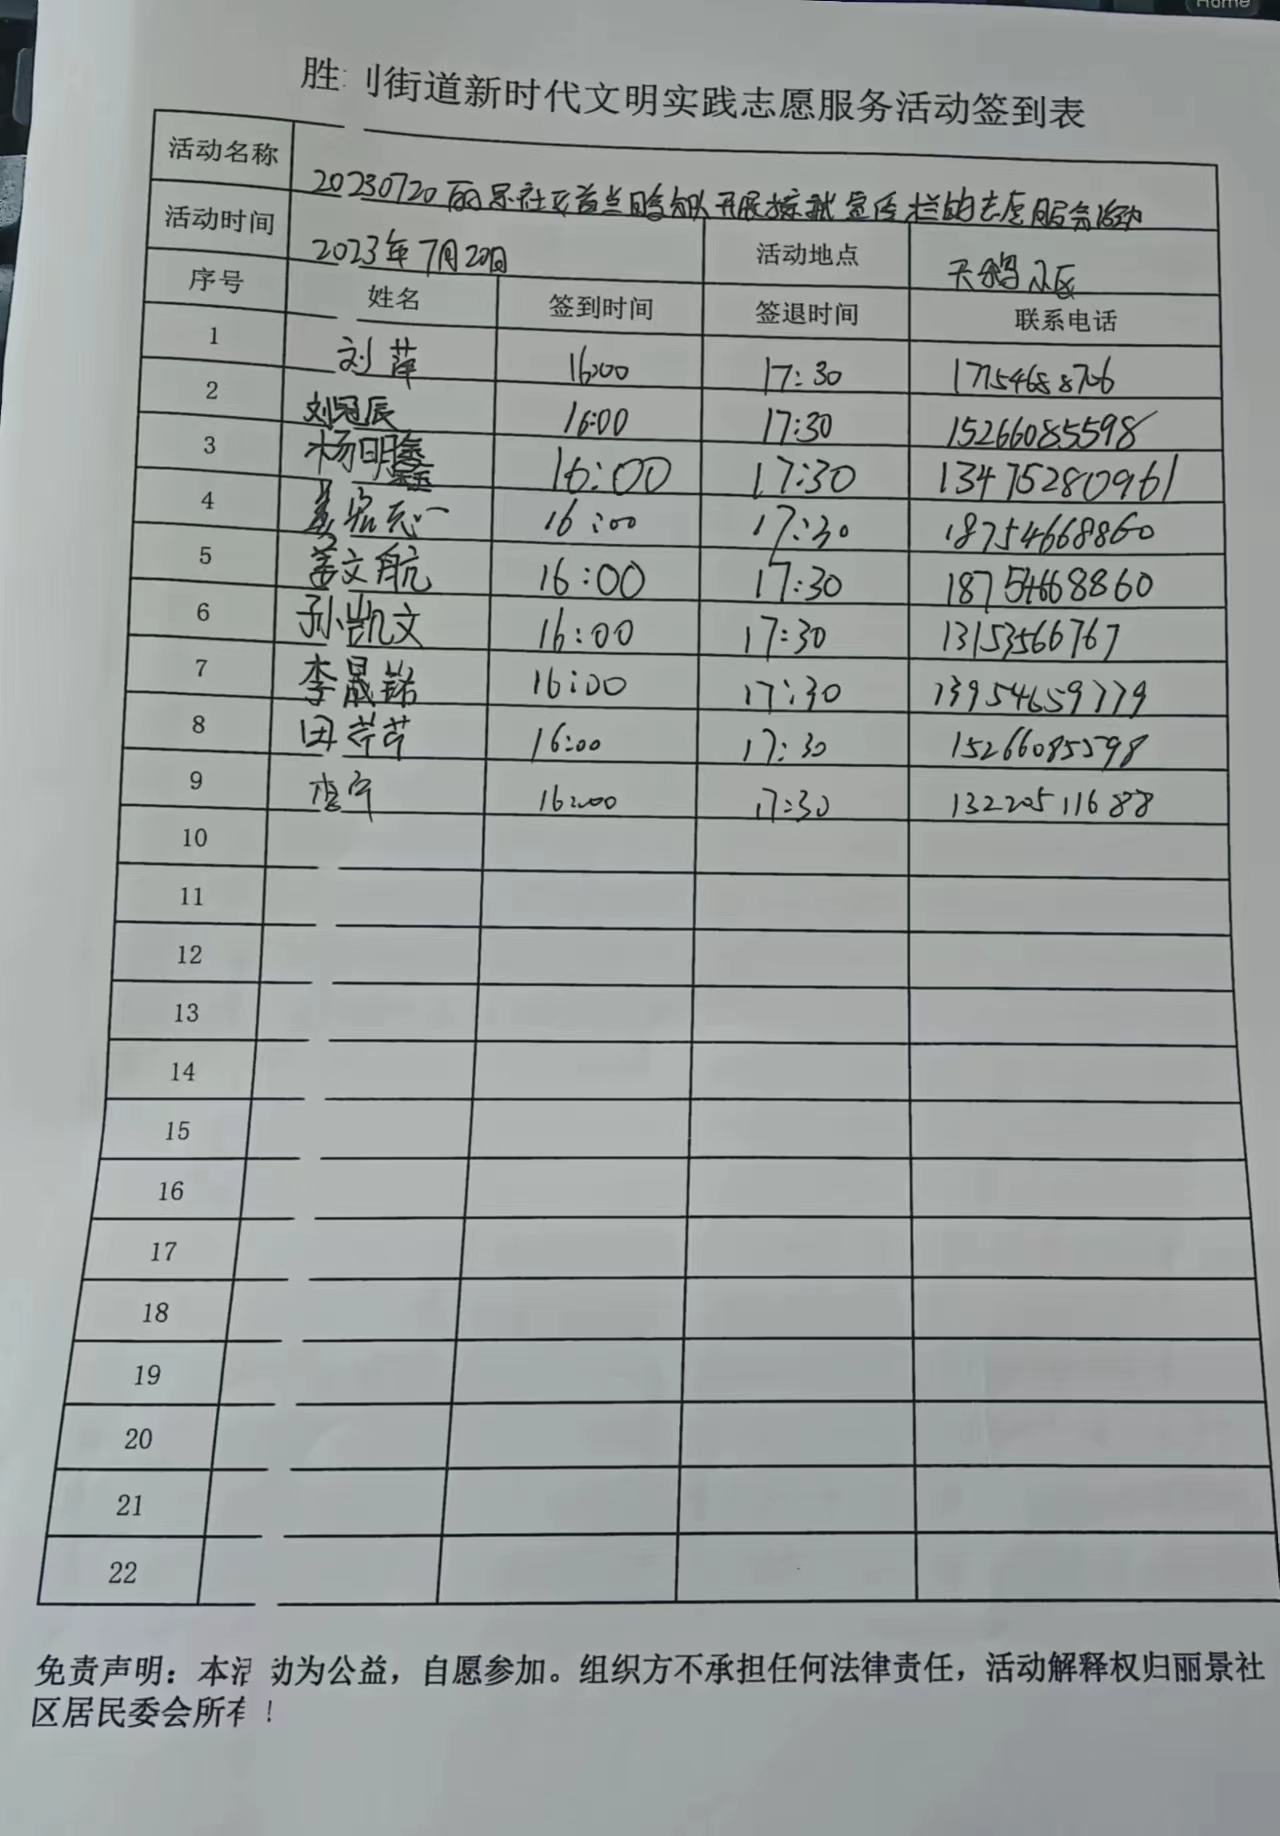 Home
胜利街道新时代文明实践志愿服务活动签到表
活动名称 20230720丽景社区 开展擦拭宣传栏的志愿服务活动
活动时间 2023年7月20日 活动地点 天鹅小区
序号 姓名 签到时间 签退时间 联系电话
1 刘萍 16:00 17:30 17154688706
2 刘冠辰 16:00 17:30 15266085598
3 杨明鑫 16:00 17:30 13475280961
4 姜 16:00 17:30 18754668860
5 姜文航 16:00 17:30 18754668860
6 孙凯文 16:00 17:30 13153566767
7 李晟铭 16:00 17:30 13954659779
8 田芹芹 16:00 17:30 15266085598
9 李宁 16:00 17:30 13220511688
10
11
12
13
14
15
16
17
18
19
20
21
22
免责声明：本活动为公益，自愿参加。组织方不承担任何法律责任，活动解释权归丽景社
区居民委会所有！